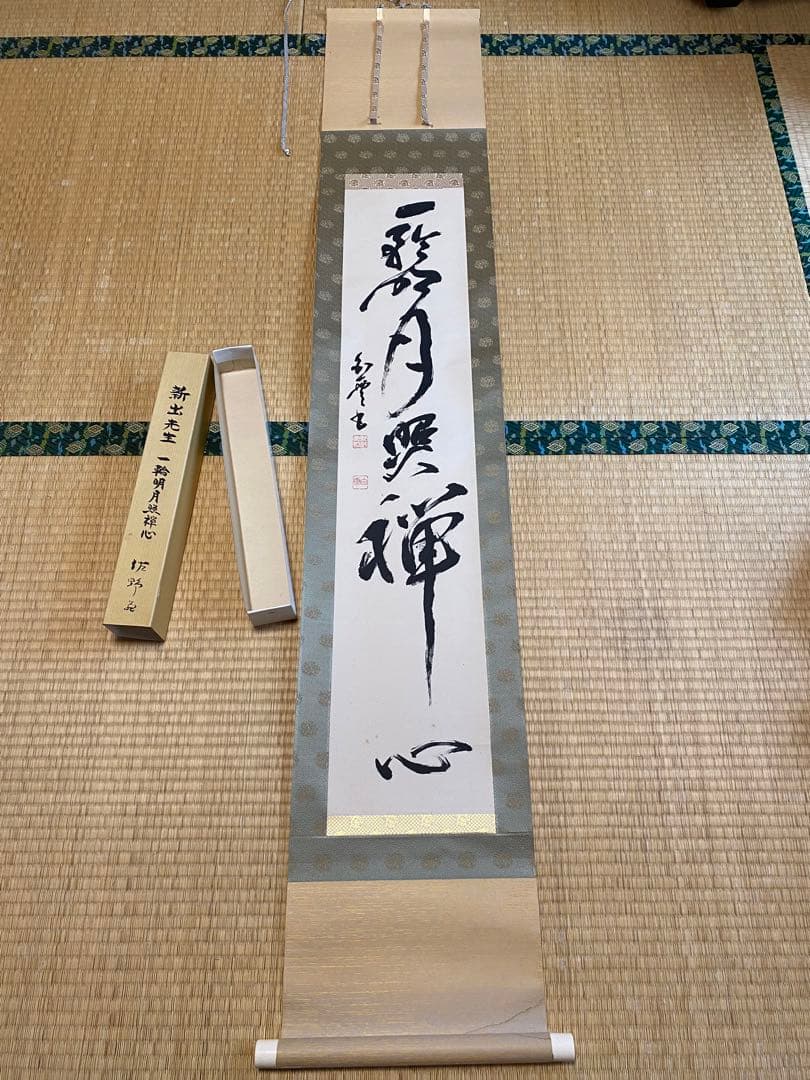 一輪明月照禅心
書
新出先生 一輪明月照禅心
佐野